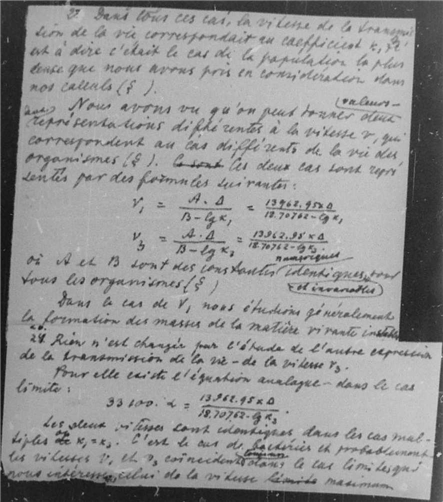 23 Dans tous ces cas, la vitesse de la transmis
sion de la vie correspondait au coefficient κ₁, c'
est à dire c'était le cas de la population la plus
dense que nous avons pris en considération dans
nos calculs (§ ).
Nous avons vu qu'on peut donner deux
valeurs-
représentations différentes à la vitesse v, qui
correspondent au cas différents de la vie des
organismes (§ ). Ce sont les deux cas sont repré
sentés par des formules suivantes:
V₁ = A·Δ / B-lgκ₁ = 13962.95×Δ / 18.70762-lgκ₁
V₃ = A·Δ / B-lgκ₃ = 13962.95×Δ / 18.70762-lgκ₃
numériques
où A et B sont des constantes identiques pour
tous les organismes (§ )
et invariables
Dans le cas de V₁ nous étudions généralement
la formation des masses de la matière vivante
24. Rien n'est changé par l'étude de l'autre expression
de la transmission de la vie - de la vitesse V₃.
Pour elle existe l'équation analogue - dans le cas
limite:
33100·α = 13962.95×Δ / 18.70762-lgκ₃.
Les deux vitesses sont identiques dans les cas mul-
tiples κ₁=κ₃. C'est le cas de bactéries et probablement
les vitesses v₁ et v₃ coïncident dans le cas limites qui
nous intéresse, celui de la vitesse limite maximum